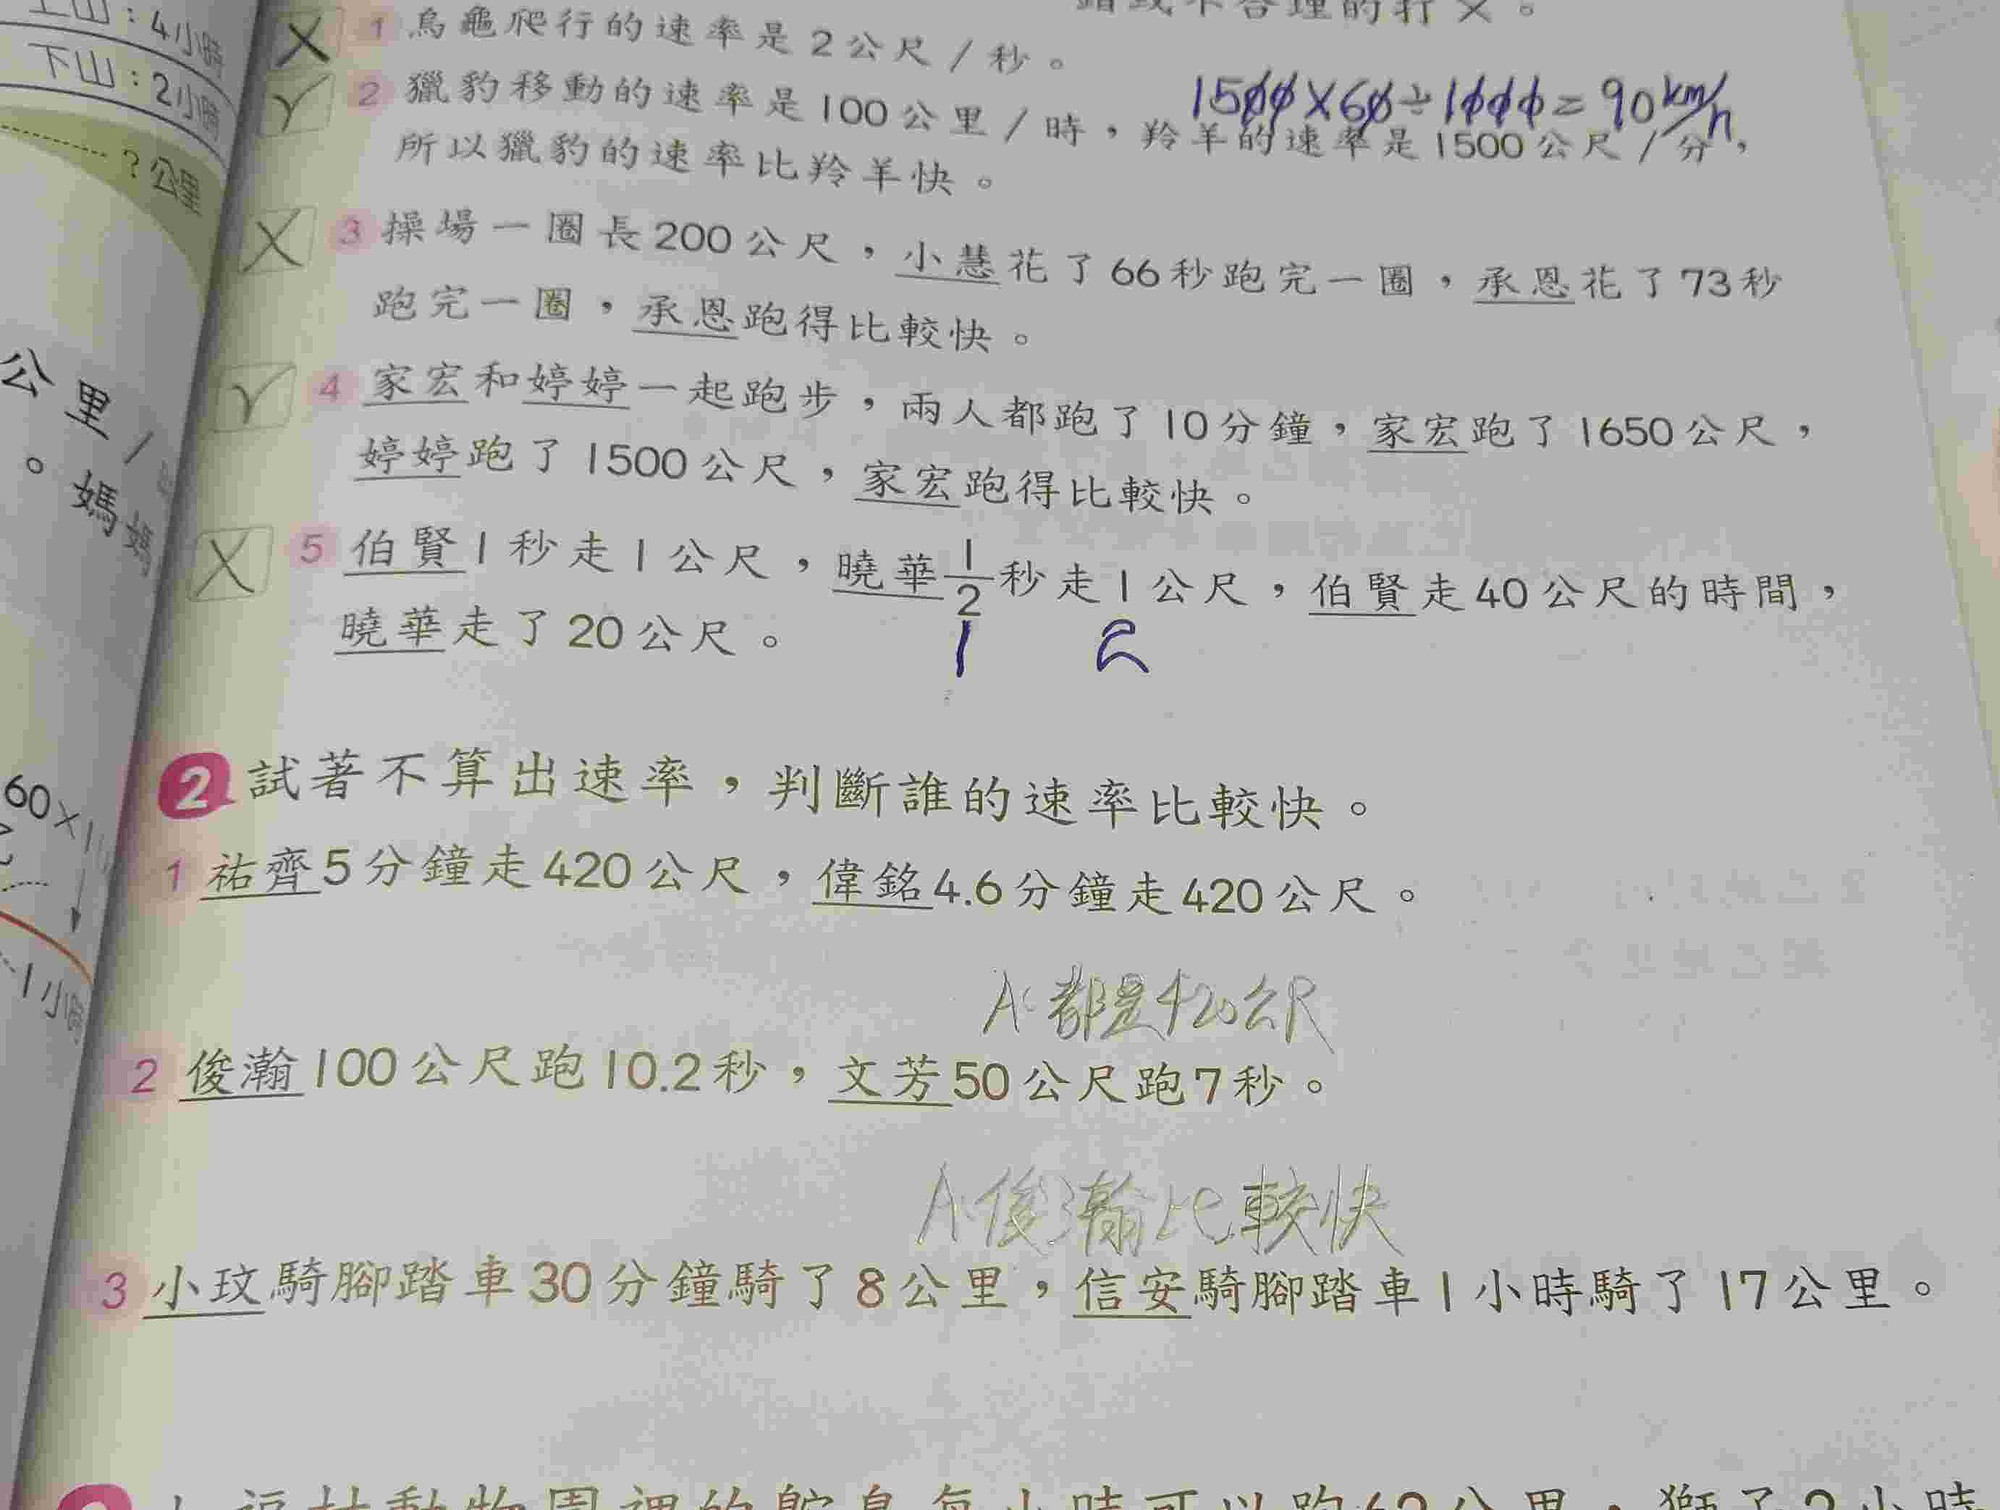 上山：4小時
下山：2小時
？公里
公里／
。媽媽
60×1
1小時
錯或不合理的打×。
× 1 烏龜爬行的速率是2公尺／秒。
✓ 2 獵豹移動的速率是100公里／時，羚羊的速率是1500公尺／分，
1500×60÷1000=90km/h
所以獵豹的速率比羚羊快。
× 3 操場一圈長200公尺，小慧花了66秒跑完一圈，承恩花了73秒
跑完一圈，承恩跑得比較快。
✓ 4 家宏和婷婷一起跑步，兩人都跑了10分鐘，家宏跑了1650公尺，
婷婷跑了1500公尺，家宏跑得比較快。
× 5 伯賢1秒走1公尺，曉華1/2秒走1公尺，伯賢走40公尺的時間，
曉華走了20公尺。
1 2
2 試著不算出速率，判斷誰的速率比較快。
1 祐齊5分鐘走420公尺，偉銘4.6分鐘走420公尺。
A:都是420公尺
2 俊瀚100公尺跑10.2秒，文芳50公尺跑7秒。
A:俊瀚比較快
3 小玟騎腳踏車30分鐘騎了8公里，信安騎腳踏車1小時騎了17公里。
福村動物園裡的鴕鳥每小時可以跑62公里，獅子2小時